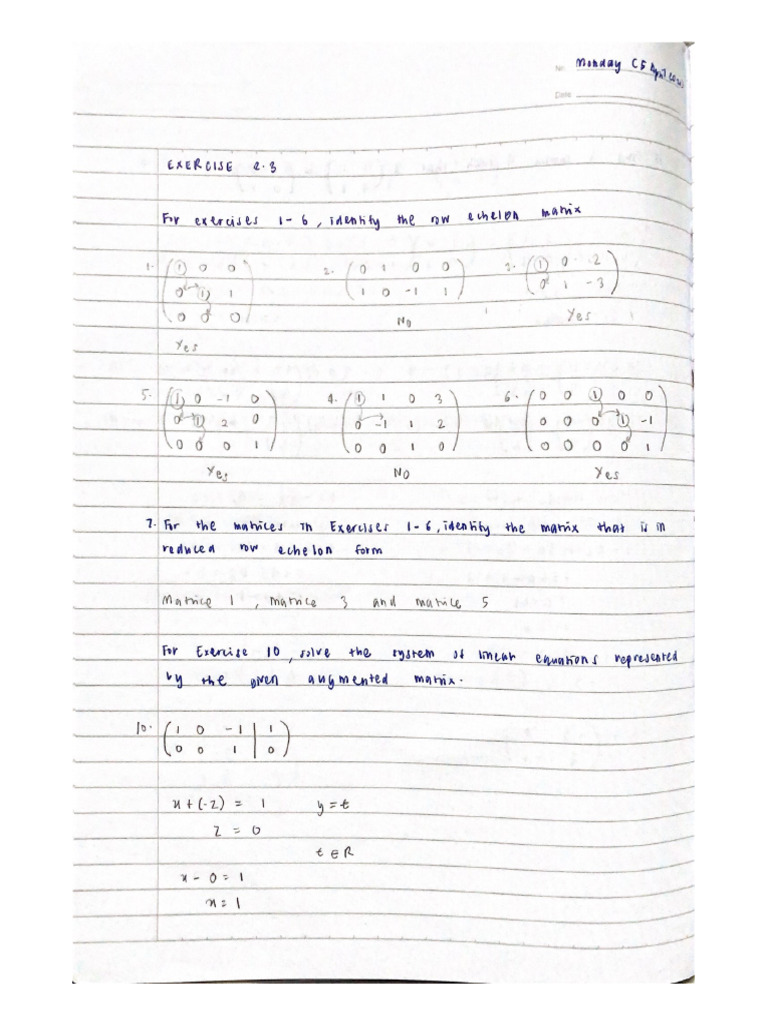 No. Monday (5 April
Date
EXERCISE 2.3
For exercises 1-6, identify the row echelon matrix
1. ( 1 0 0 2. ( 0 1 0 0 ) 3. ( 1 0 -2 )
0 1 1 1 0 -1 1 0 1 -3
0 0 0 ) No Yes
Yes
5. ( 1 0 -1 0 4. ( 1 1 0 3 6. ( 0 0 1 0 0
0 1 2 0 0 -1 1 2 0 0 0 1 -1
0 0 0 1 ) 0 0 1 0 ) 0 0 0 0 1 )
Yes No Yes
7. For the matrices in Exercises 1-6, identify the matrix that is in
reduced row echelon form
Matrice 1, matrice 3 and matrice 5
For Exercise 10, solve the system of linear equations represented
by the given augmented matrix.
10. ( 1 0 -1 | 1
0 0 1 | 0 )
x + (-z) = 1 y = t
z = 0
t ∈ R
x - 0 = 1
x = 1